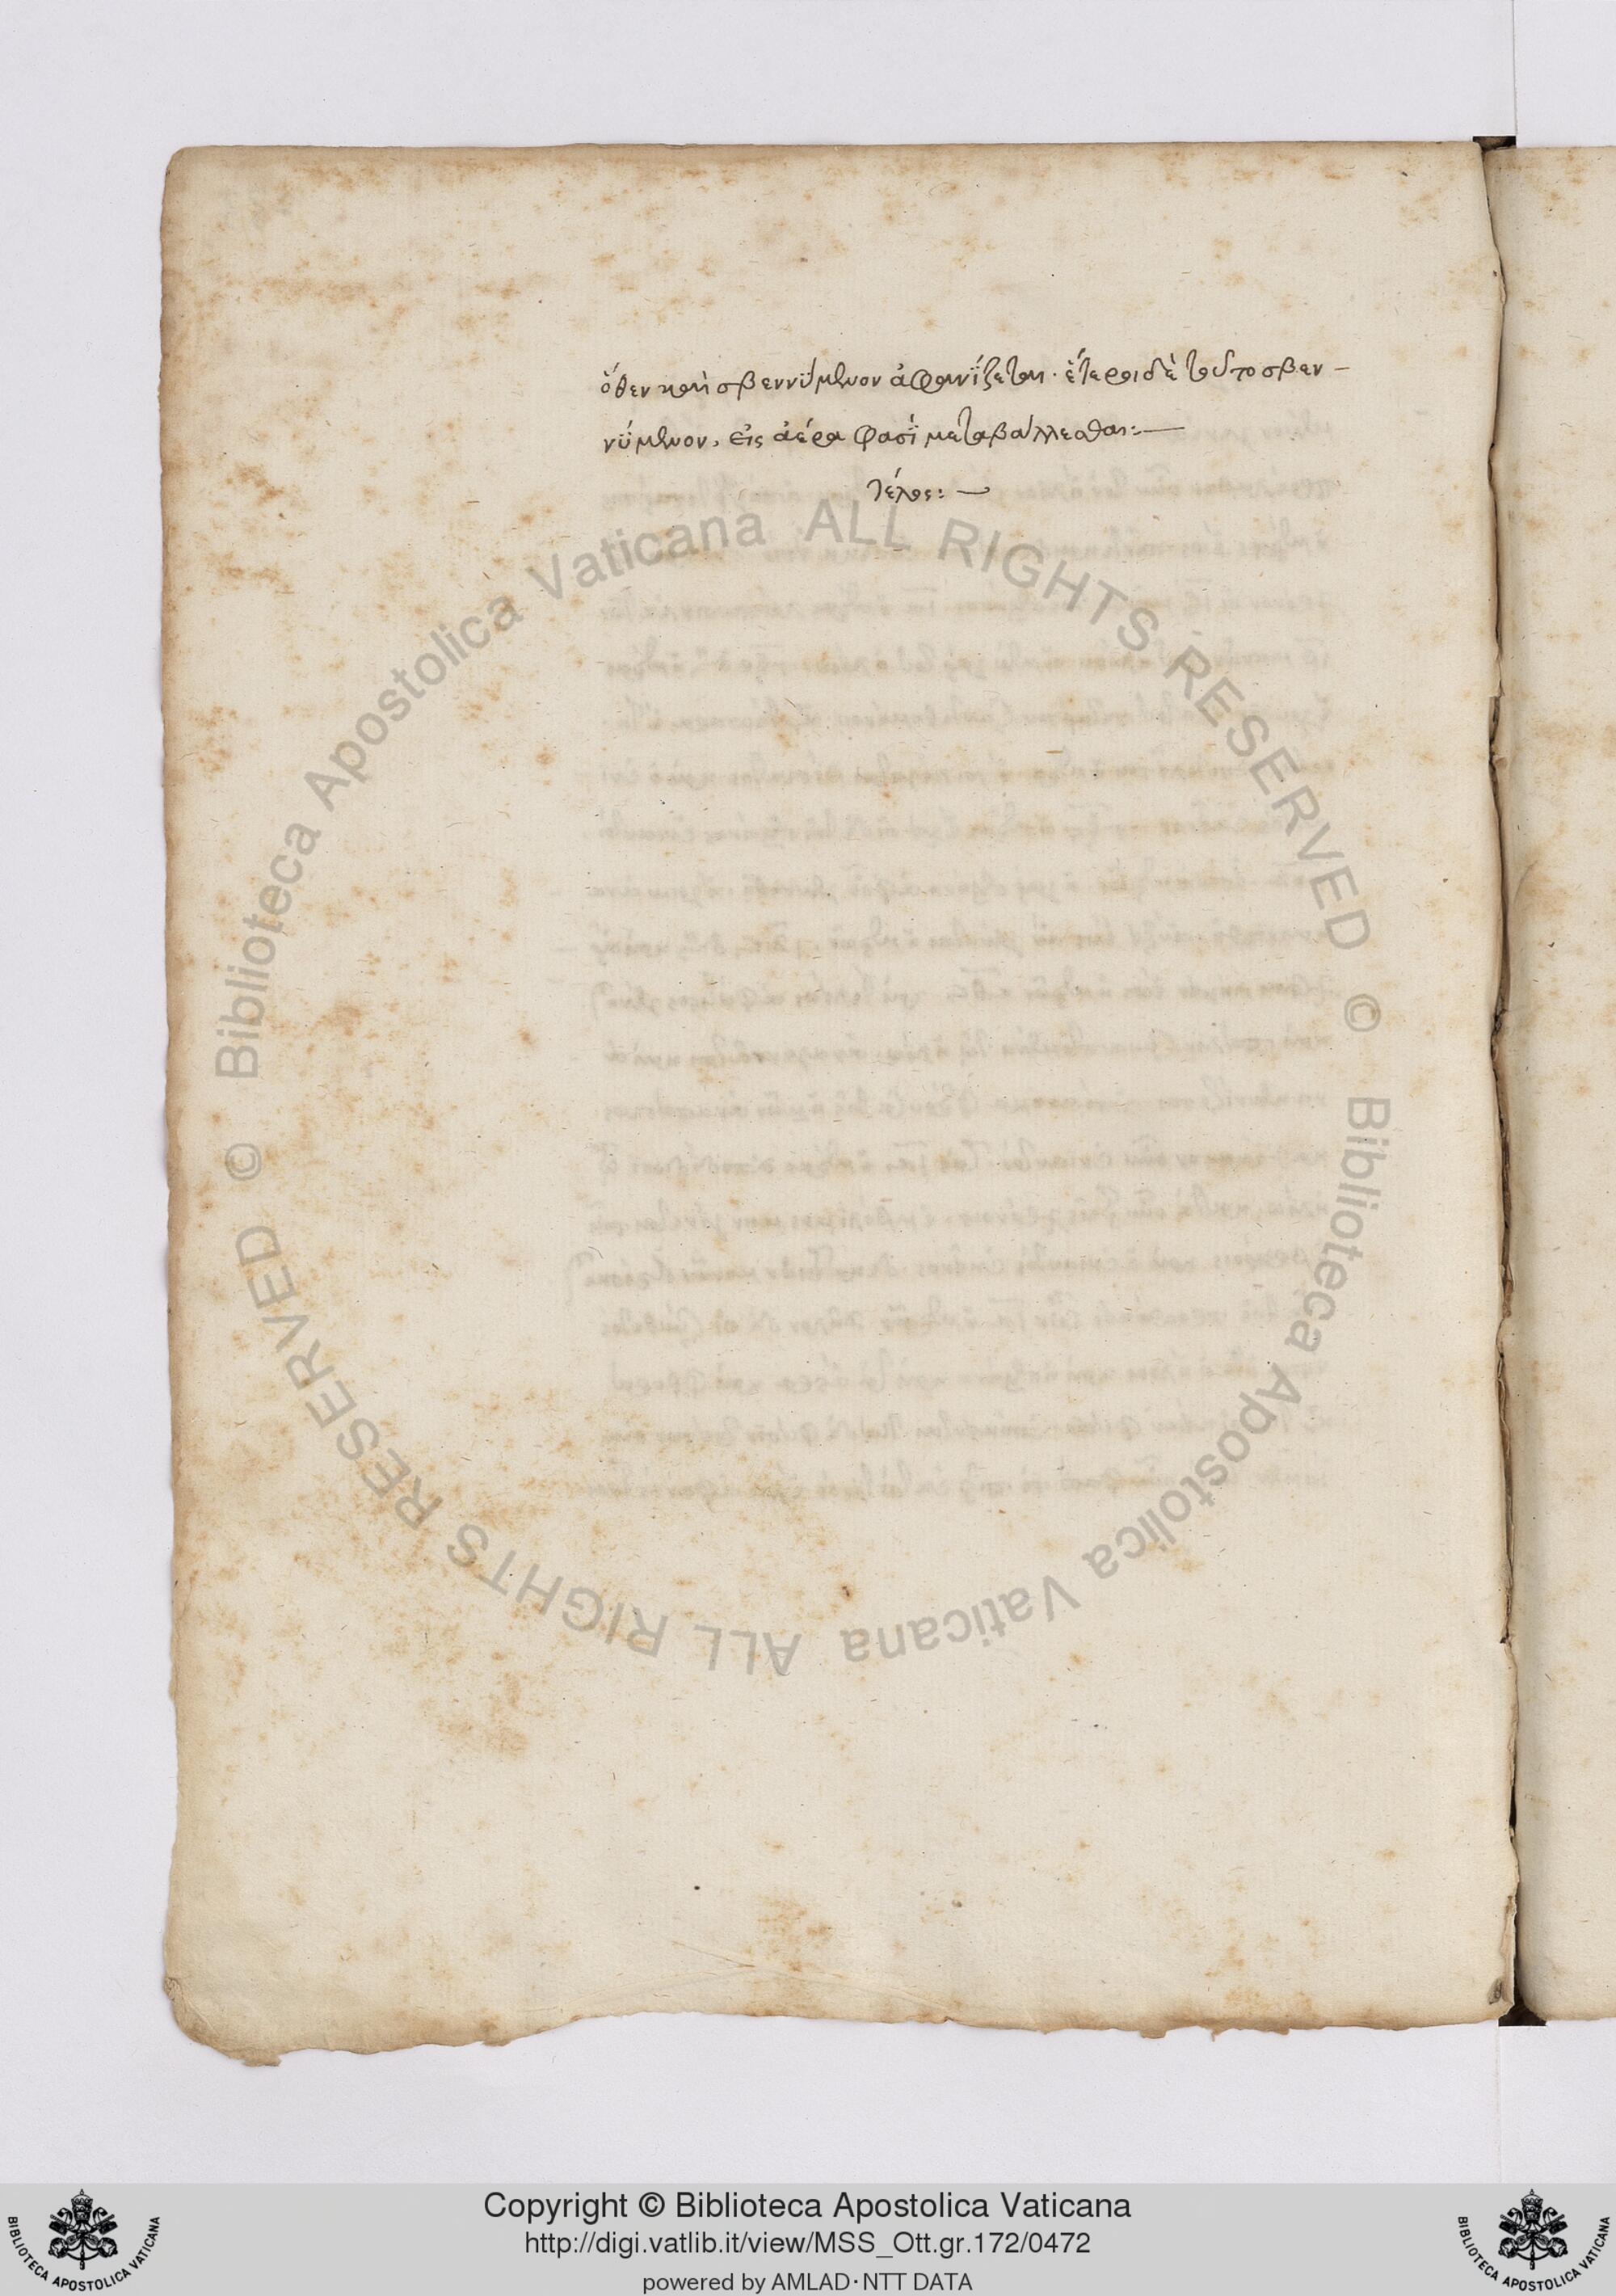 ὅθεν καὶ σβεννΰμενον ἀφανΐζεται· ἕτεροι δὲ τοῦτο σβεν-
νΰμενον, εἰς ἀέρα φασῒ μεταβάλλεσθαι:—
τέλος:—
© Biblioteca Apostolica Vaticana ALL RIGHTS RESERVED
© Biblioteca Apostolica Vaticana ALL RIGHTS RESERVED
Copyright © Biblioteca Apostolica Vaticana
http://digi.vatlib.it/view/MSS_Ott.gr.172/0472
powered by AMLAD·NTT DATA
BIBLIOTECA APOSTOLICA VATICANA
BIBLIOTECA APOSTOLICA VATICANA